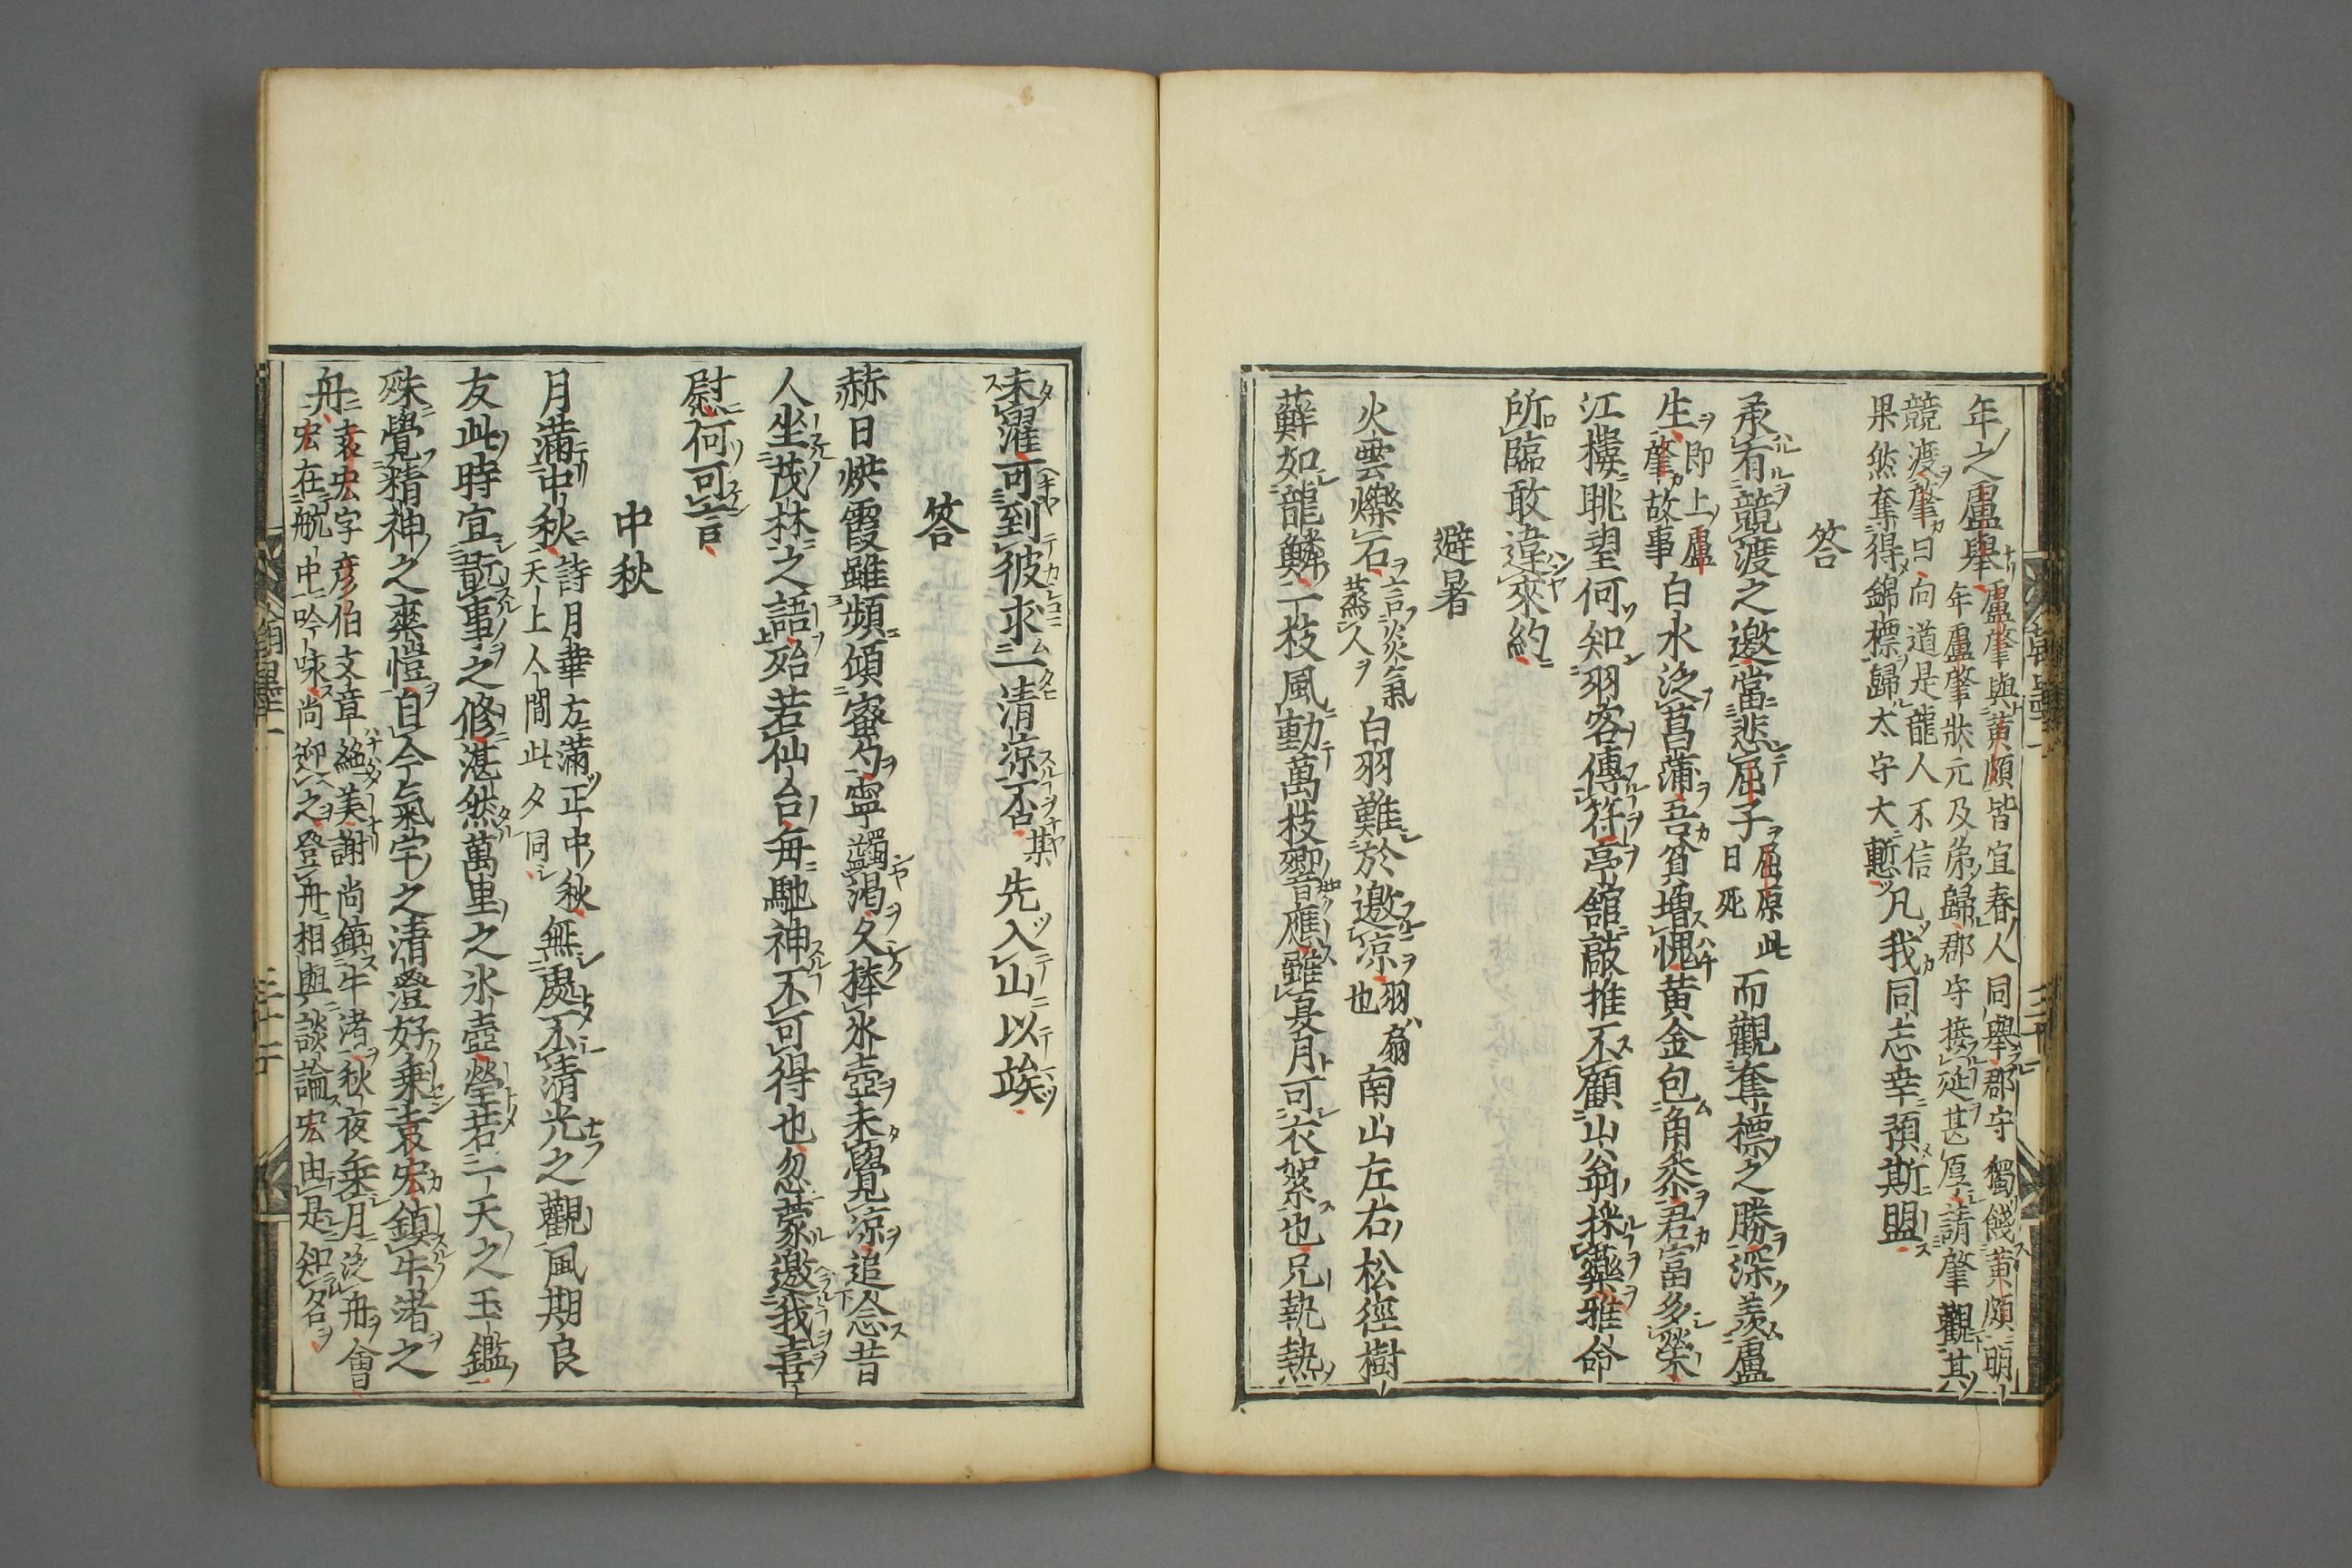 年之盧舉盧肇與黃頗皆宜春人同舉郡守獨餞黃頗明
年盧肇狀元及第歸郡守接延甚厚請肇觀其
競渡肇曰向道是龍人不信
果然奪得錦標歸太守大慙凡我同志幸預斯盟
答
承有競渡之邀當悲屈子屈原此日死而觀奪標之勝深羨盧
生即上盧肇故事白水泛菖蒲吾貧增愧黃金包角黍君富多榮
江樓眺望何知羽客傳符亭舘敲推不顧山翁採藥雅命
所臨敢違來約
避暑
火雲爍石言炎氣蒸人白羽難於邀凉羽扇也南山左右松徑樹
蘚如龍鱗一枝風動萬枝響應雖夏月可衣絮也兄執熱
未濯可到彼求一清凉否某先入山以竢
答
赫日烘霞雖頻傾蜜勺寧蠲渴久捧氷壺未覺凉追念昔
人坐茂林之語殆若仙台每馳神不可得也忽蒙邀我喜
慰何可言
中秋
月滿中秋詩月華方滿正中秋天上人間此夕同無處不清光之觀風期良
友此時宜翫事之修湛然萬里之氷壺瑩若一天之玉鑑
殊覺精神之爽愷自今氣宇之清澄好乘袁宏鎮牛渚之
舟袁宏字彦伯文章絕美謝尚鎮牛渚秋夜乗月泛舟會
宏在航中吟咏尚迎之登舟相與談論宏由是知名